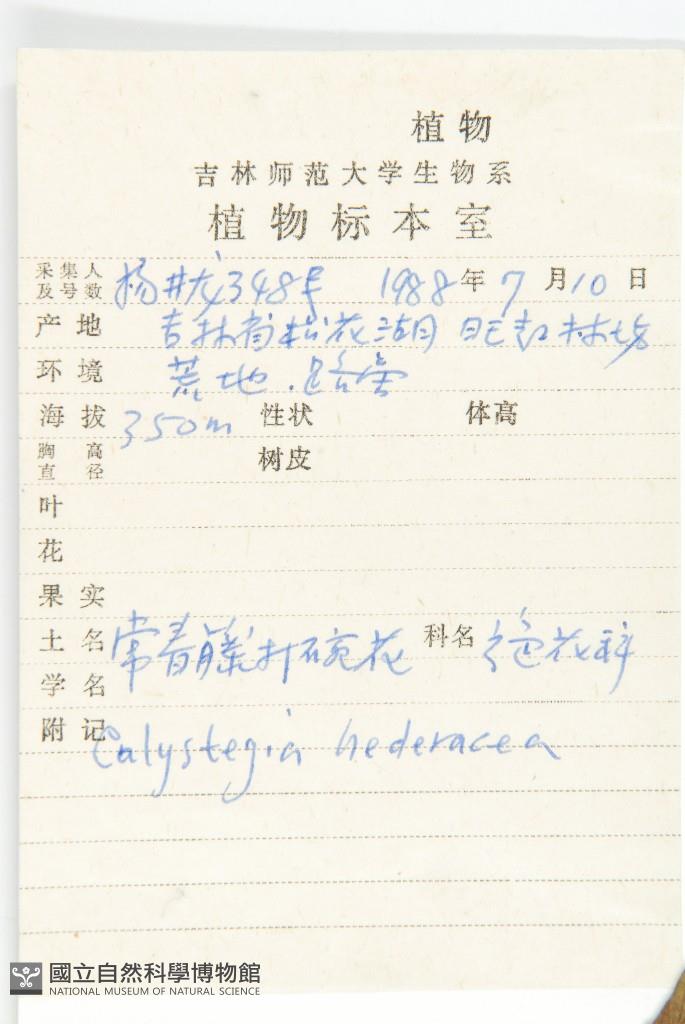 植物
吉林师范大学生物系
植物标本室
采集人及号数 杨井龙348号 1988年7月10日
产地 吉林省松花湖 林场
环境 荒地.路旁
海拔 350m 性状 体高
胸高直径 树皮
叶
花
果实
土名 常春藤打碗花 科名 旋花科
学名
附记 Calystegia hederacea
國立自然科學博物館
NATIONAL MUSEUM OF NATURAL SCIENCE